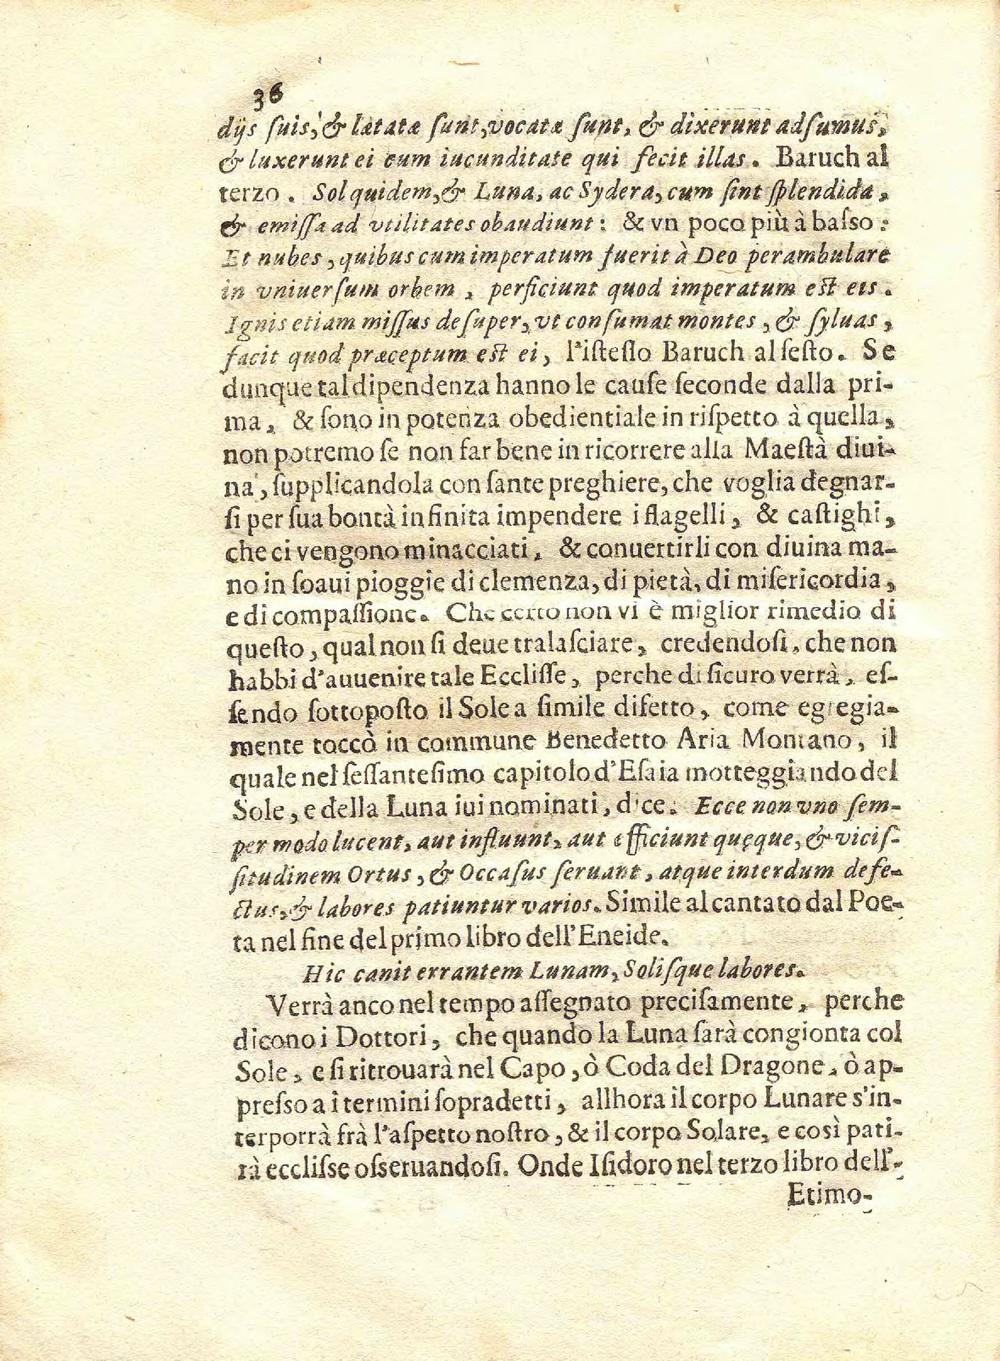 36
dijs ſuis, & lætatæ ſunt, vocatæ ſunt, & dixerunt adſumus,
& luxerunt ei cum iucunditate qui fecit illas. Baruch al
terzo. Sol quidem, & Luna, ac Sydera, cum ſint ſplendida,
& emiſſa ad vtilitates obaudiunt: & vn poco più à baſſo:
Et nubes, quibus cum imperatum fuerit à Deo perambulare
in vniuerſum orbem, perficiunt quod imperatum eſt eis.
Ignis etiam miſſus deſuper, vt conſumat montes, & ſyluas,
facit quod præceptum eſt ei, l'iſteſſo Baruch al ſeſto. Se
dunque tal dipendenza hanno le cauſe ſeconde dalla pri-
ma, & ſono in potenza obedientiale in riſpetto à quella,
non potremo ſe non far bene in ricorrere alla Maeſtà diui-
na, ſupplicandola con ſante preghiere, che voglia degnar-
ſi per ſua bontà infinita impendere i flagelli, & caſtighi,
che ci vengono minacciati, & conuertirli con diuina ma-
no in ſoaui pioggie di clemenza, di pietà, di miſericordia,
e di compaſſione. Che certo non vi è miglior rimedio di
queſto, qual non ſi deue tralaſciare, credendoſi, che non
habbi d'auuenire tale Eccliſſe, perche di ſicuro verrà, eſ-
ſendo ſottopoſto il Sole a ſimile difetto, come egregia-
mente toccò in commune Benedetto Aria Montano, il
quale nel ſeſſanteſimo capitolo d'Eſaia motteggiando del
Sole, e della Luna iui nominati, dice. Ecce non vno ſem-
per modo lucent, aut influunt, aut efficiunt quęque, & viciſ-
ſitudinem Ortus, & Occaſus ſeruant, atque interdum defe-
ctus, & labores patiuntur varios. Simile al cantato dal Poe-
ta nel fine del primo libro dell'Eneide.
Hic canit errantem Lunam, Soliſque labores.
Verrà anco nel tempo aſſegnato preciſamente, perche
dicono i Dottori, che quando la Luna ſarà congionta col
Sole, e ſi ritrouarà nel Capo, ò Coda del Dragone, ò ap-
preſſo a i termini ſopradetti, allhora il corpo Lunare s'in-
terporrà frà l'aſpetto noſtro, & il corpo Solare, e così pati-
rà eccliſſe oſſeruandoſi. Onde Iſidoro nel terzo libro dell'-
Etimo-